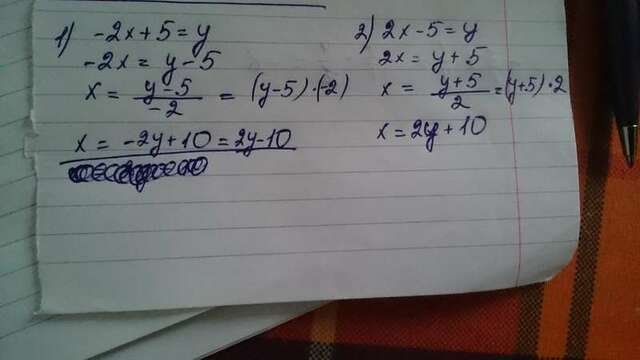 1) -2x+5=y
-2x = y-5
x = \frac{y-5}{-2} = (y-5)·(-2)
x = -2y+10 = 2y-10
2) 2x-5=y
2x = y+5
x = \frac{y+5}{2} = (y+5)·2
x = 2y+10